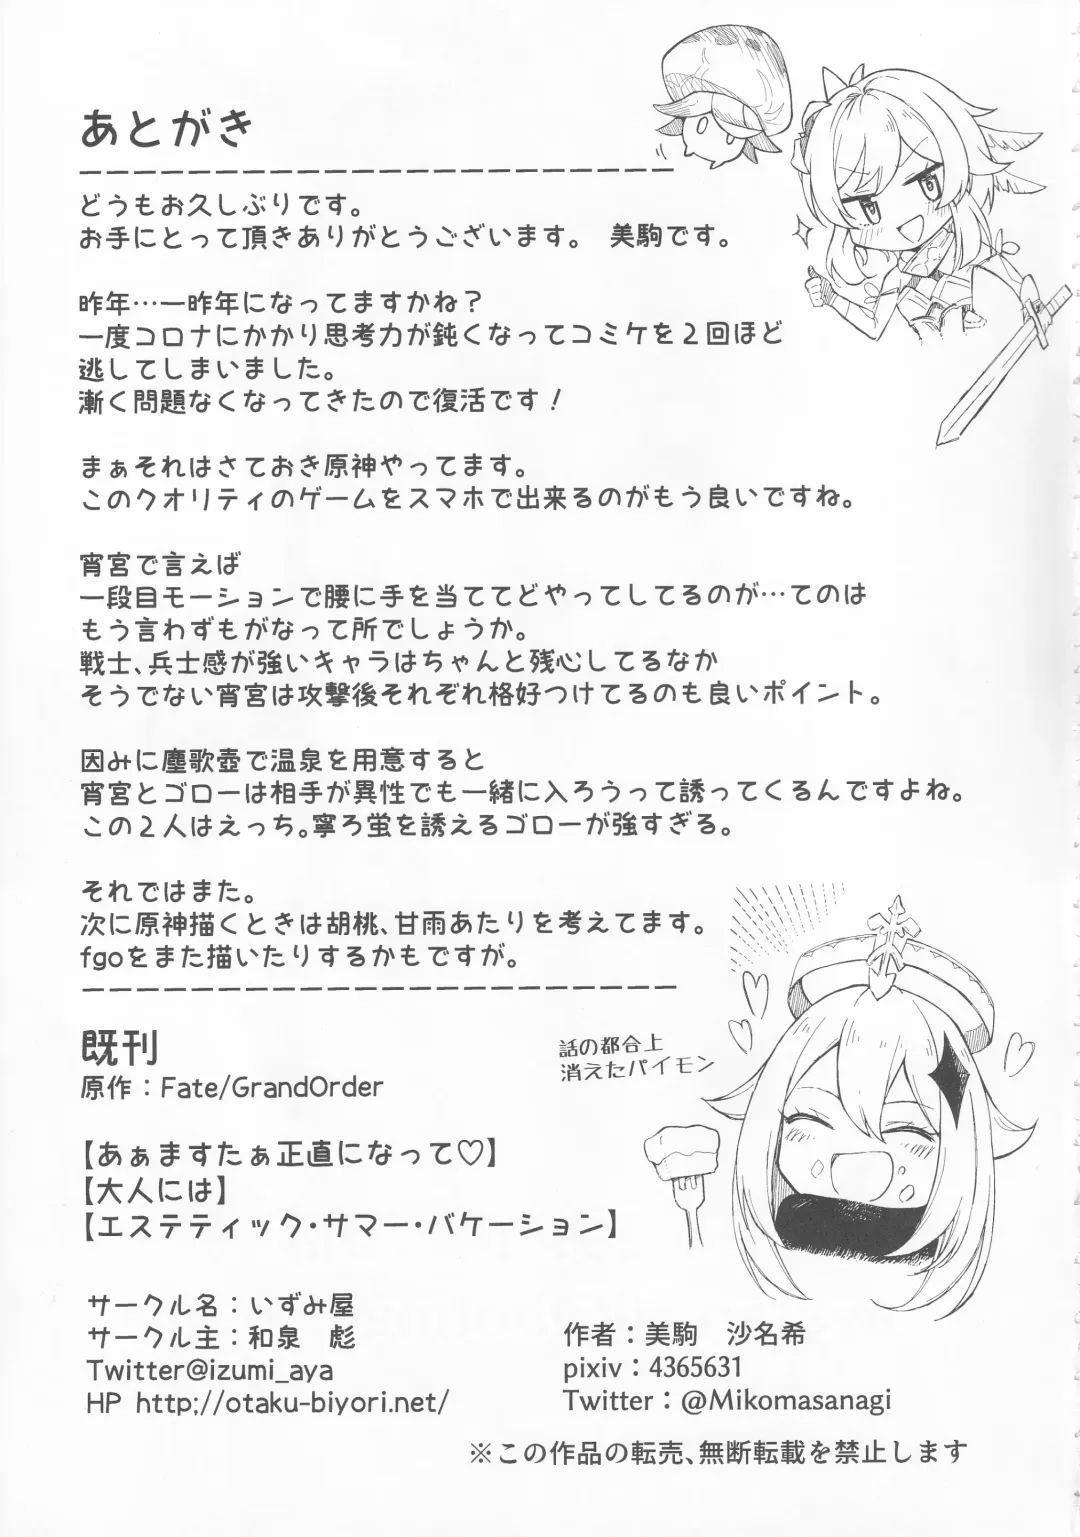 あとがき
どうもお久しぶりです。
お手にとって頂きありがとうございます。　美駒です。
昨年…一昨年になってますかね？
一度コロナにかかり思考力が鈍くなってコミケを２回ほど
逃してしまいました。
漸く問題なくなってきたので復活です！
まぁそれはさておき原神やってます。
このクオリティのゲームをスマホで出来るのがもう良いですね。
宵宮で言えば
一段目モーションで腰に手を当ててどやってしてるのが…てのは
もう言わずもがなって所でしょうか。
戦士、兵士感が強いキャラはちゃんと残心してるなか
そうでない宵宮は攻撃後それぞれ格好つけてるのも良いポイント。
因みに塵歌壺で温泉を用意すると
宵宮とゴローは相手が異性でも一緒に入ろうって誘ってくるんですよね。
この２人はえっち。寧ろ蛍を誘えるゴローが強すぎる。
それではまた。
次に原神描くときは胡桃、甘雨あたりを考えてます。
fgoをまた描いたりするかもですが。
話の都合上
消えたパイモン
既刊
原作：Fate/GrandOrder
【あぁますたぁ正直になって♡】
【大人には】
【エステティック・サマー・バケーション】
サークル名：いずみ屋
サークル主：和泉　彪
Twitter@izumi_aya
HP http;//otaku-biyori.net/
作者：美駒　沙名希
pixiv：4365631
Twitter：@Mikomasanagi
※この作品の転売、無断転載を禁止します